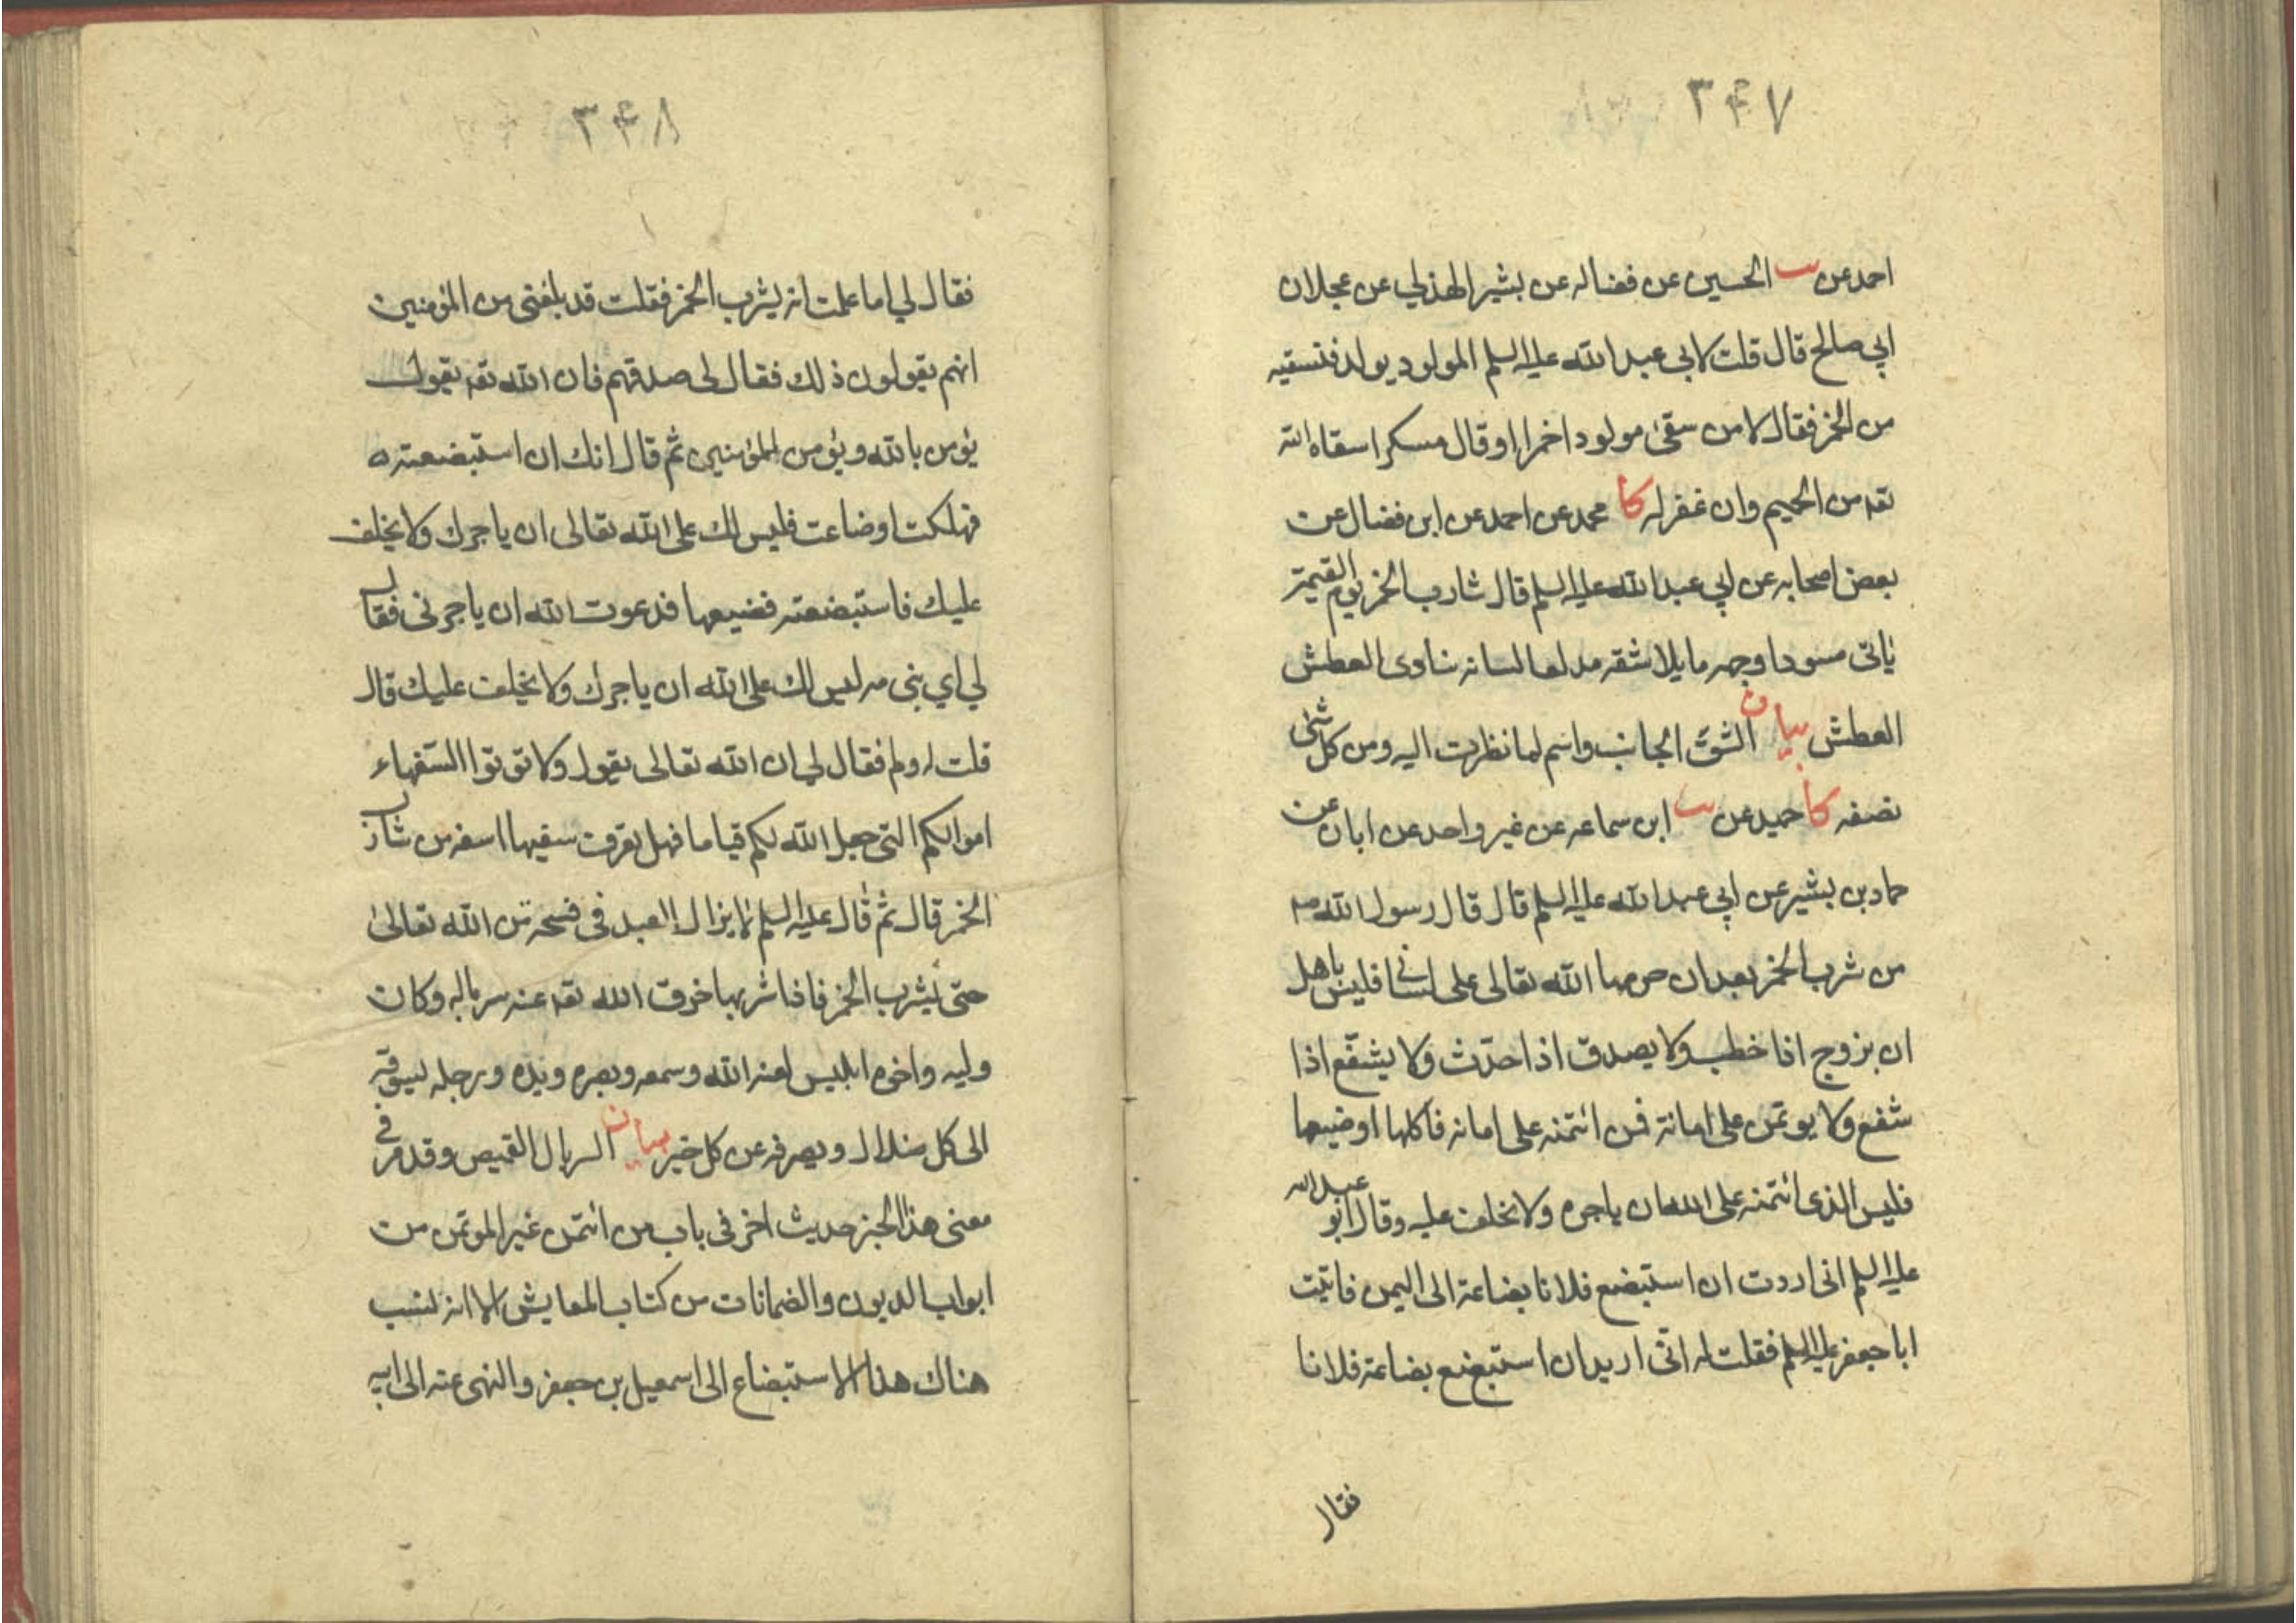 ۳۴۷
احمد عن الحسين عن فضاله عن بشير الهذلي عن عجلان
ابي صالح قال قلت لابي عبد الله عليه السلم المولود يولد فنسقيه
من الخمر فقال لا من سقى مولودا خمرا او قال مسكرا سقاه الله
تعه من الحميم وان غفر له كا محمد عن احمد عن ابن فضال عن
بعض اصحابه عن ابي عبد الله عليه السلم قال شارب الخمر يوم القيمة
ياتى مسودا وجهه مايلا شقه مدلعا لسانه ينادى العطش
العطش بيان الشق الجانب واسم لما نظرت اليه ومن كل شئ
نصفه كا حميد عن ابن سماعه عن غير واحد عن ابان عن
حماد بن بشير عن ابي عبد الله عليه السلم قال قال رسول الله صه
من شرب الخمر بعد ان حرمها الله تعالى على لسانى فليس باهل
ان يزوج اذا خطب ولا يصدق اذا حدّث ولا يشفّع اذا
شفع ولا يوتمن على امانة فمن ائتمنه على امانه فاكلها او ضيعها
فليس الذى ائتمنه على الله ان ياجره ولا يخلف عليه وقال ابو عبد الله
عليه السلم انى اردت ان استبضع فلانا بضاعة الى اليمن فاتيت
ابا جعفر عليه السلم فقلت له انّى اريد ان استبضع بضاعة فلانا
فقال
۳۴۸
فقال لي اما علمت انه يشرب الخمر فقلت قد بلغنى من المؤمنين
انهم يقولون ذلك فقال لى صدقهم فان الله تعه يقول
يؤمن بالله ويؤمن للمؤمنين ثم قال انك ان استبضعته
فهلكت او ضاعت فليس لك على الله تعالى ان ياجرك ولا يخلف
عليك فاستبضعته فضيعها فدعوت الله ان ياجرنى فقال
لي اي بنى مه ليس لك على الله ان ياجرك ولا يخلف عليك قال
قلت له ولم فقال لي ان الله تعالى يقول ولا تؤتوا السّفهاء
اموالكم التى جعل الله لكم قياما فهل تعرف سفيها اسفه من شارب
الخمر قال ثم قال عليه السلم لا يزال العبد فى فسحة من الله تعالى
حتى يشرب الخمر فاذا شربها خرق الله تعه عنه سرباله وكان
وليه واخوه ابليس لعنه الله وسمعه وبصره ويده ورجله يسوقه
الى كل ضلال ويصرفه عن كل خير بيان السربال القميص وقد مر في
معنى هذا الخبر حديث اخر فى باب من ائتمن غير الموتمن من
ابواب الديون والضمانات من كتاب المعايش الا انه نسب
هناك هذا الاستبضاع الى اسمعيل بن جعفر والنهى عنه الى ابيه